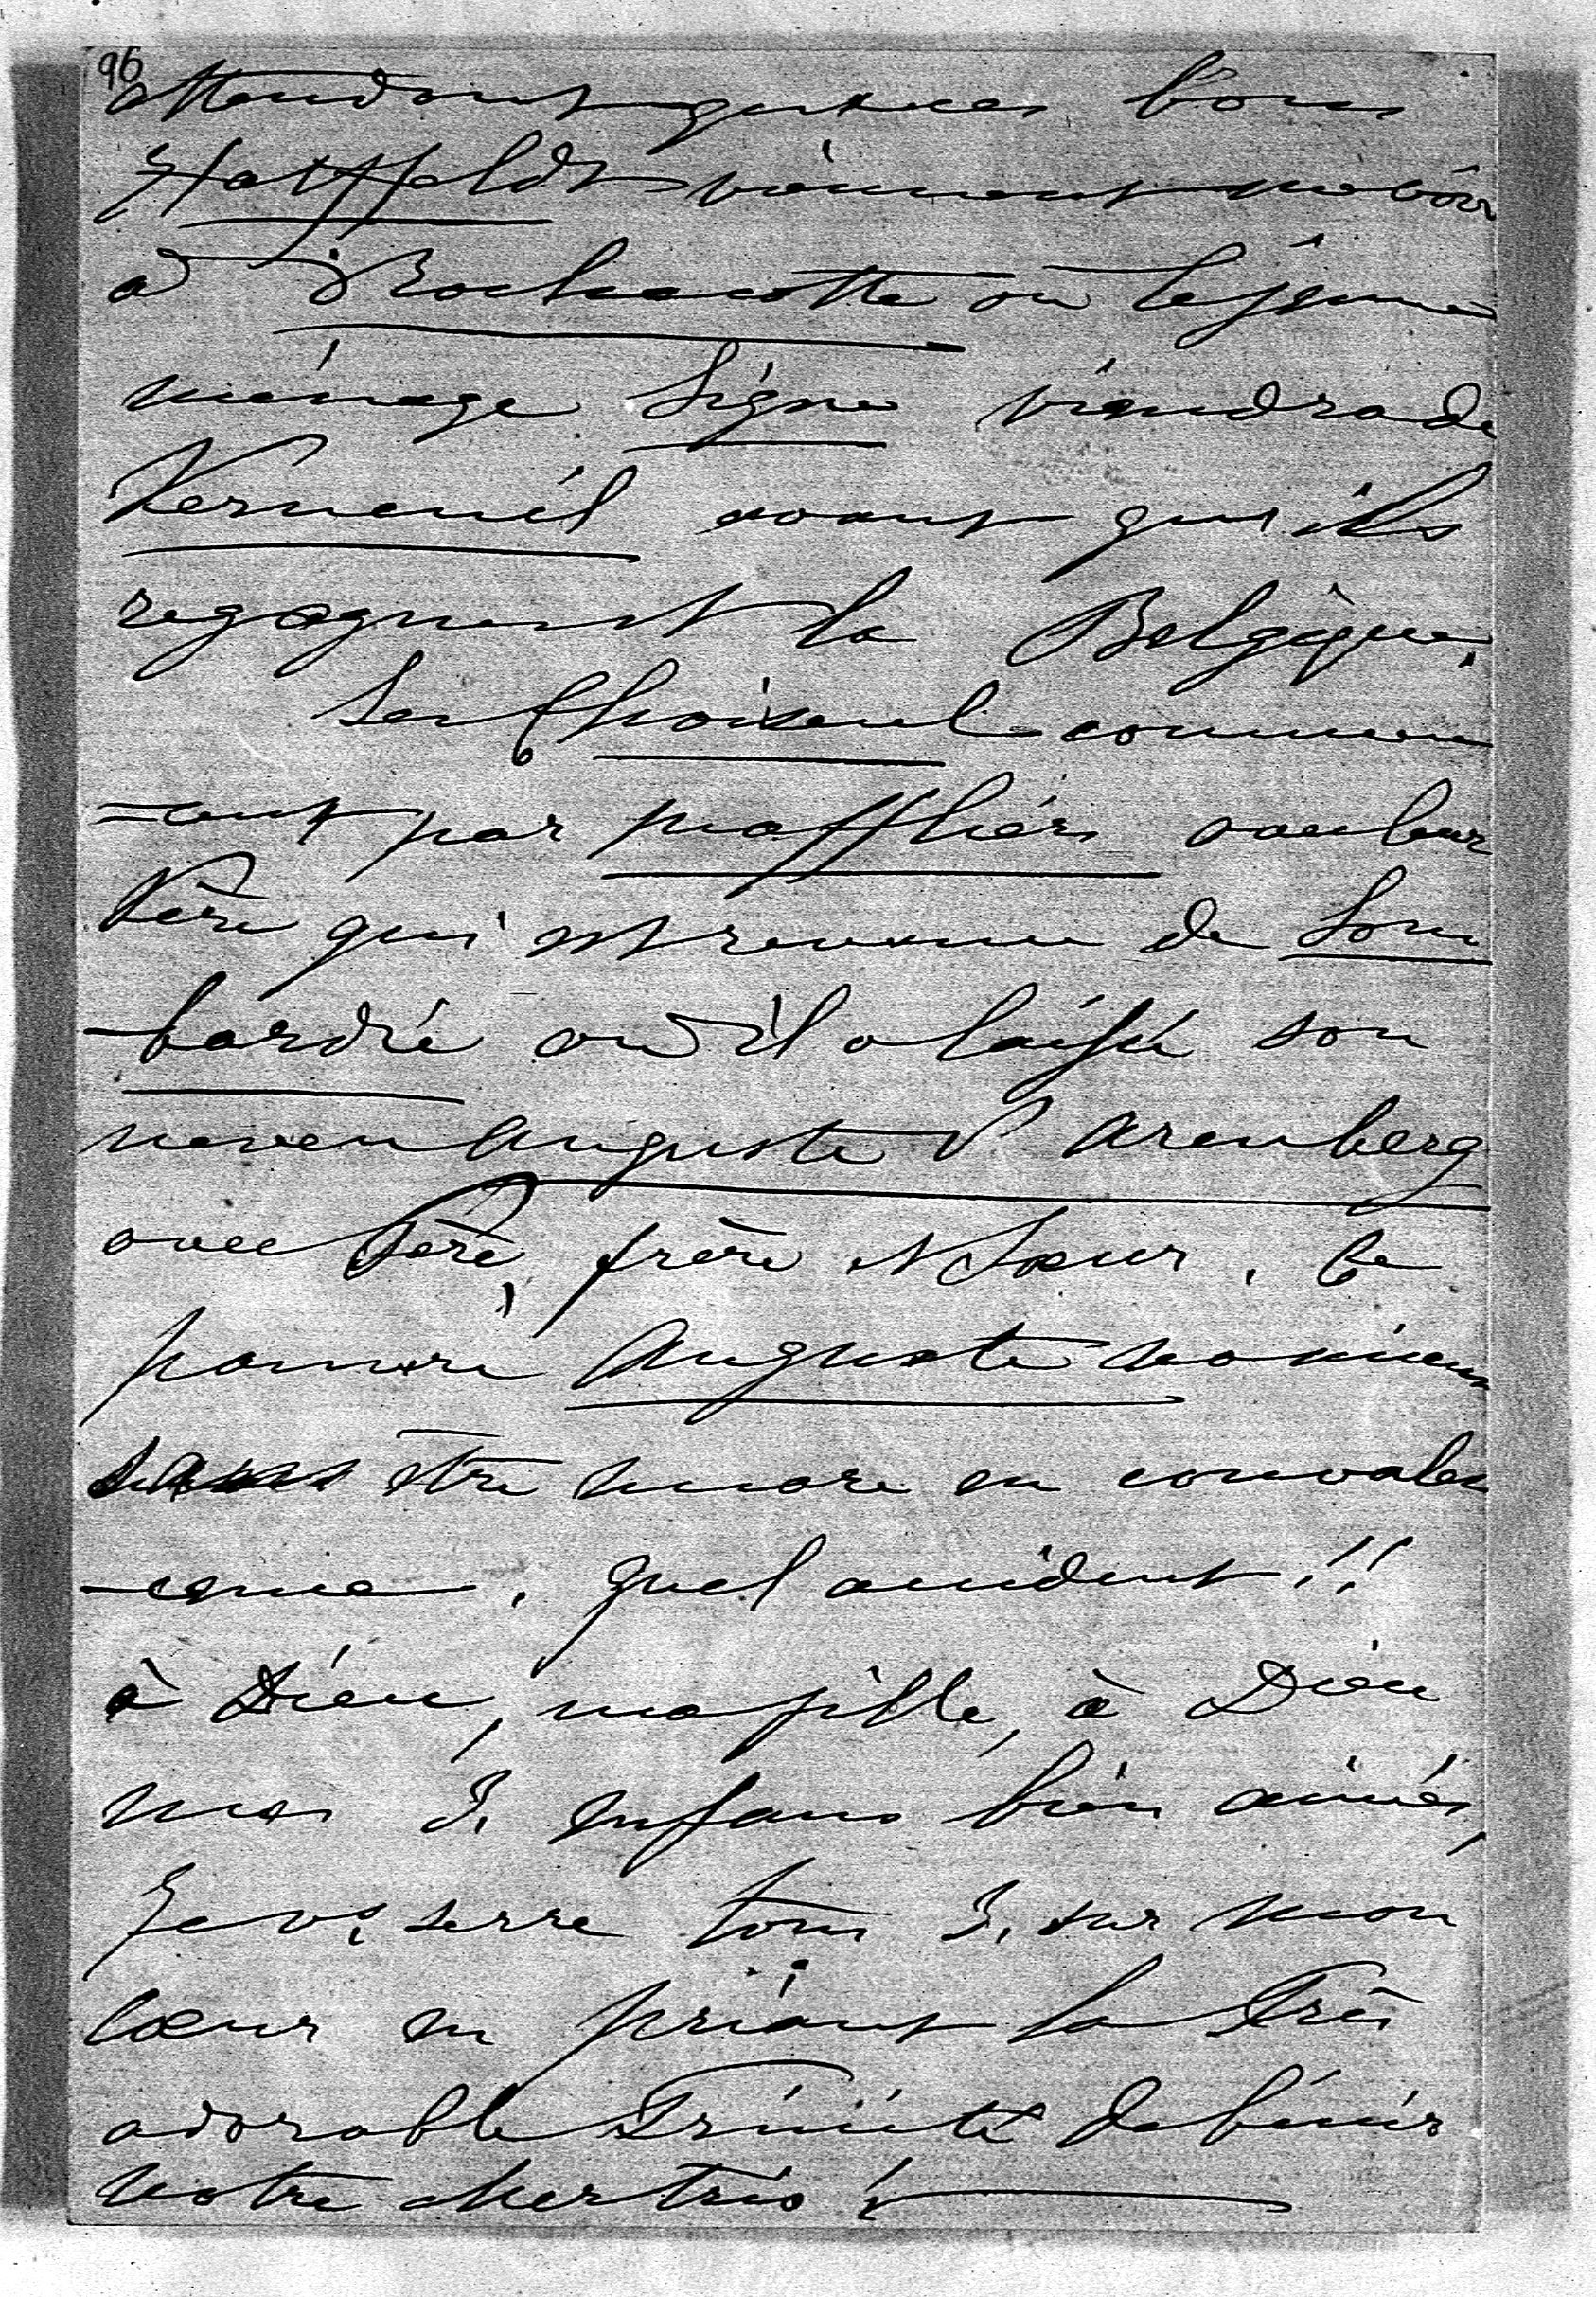 96
attendant que ces bons
Hatzfeldt viennent me voir
à Rochecotte où le jeune
ménage Ligne viendra de
Verneuil avant qu'ils
regagnent la Belgique.
Les Choiseul commen
=cent par Maffliers avec leur
Père qui est revenu de Lom
-bardie où il a laissé son
neveu Auguste d'Arenberg
avec Père, frère et Soeur. Ce
pauvre Auguste va mieux
sans être encore en convales
-cence. quel accident!!
à Dieu, ma fille, à Dieu
mes 3. enfans bien aimés,
Je vs. serre tous 3. sur mon
Coeur en priant la Très
adorable Trinité de bénir
notre cher trio!